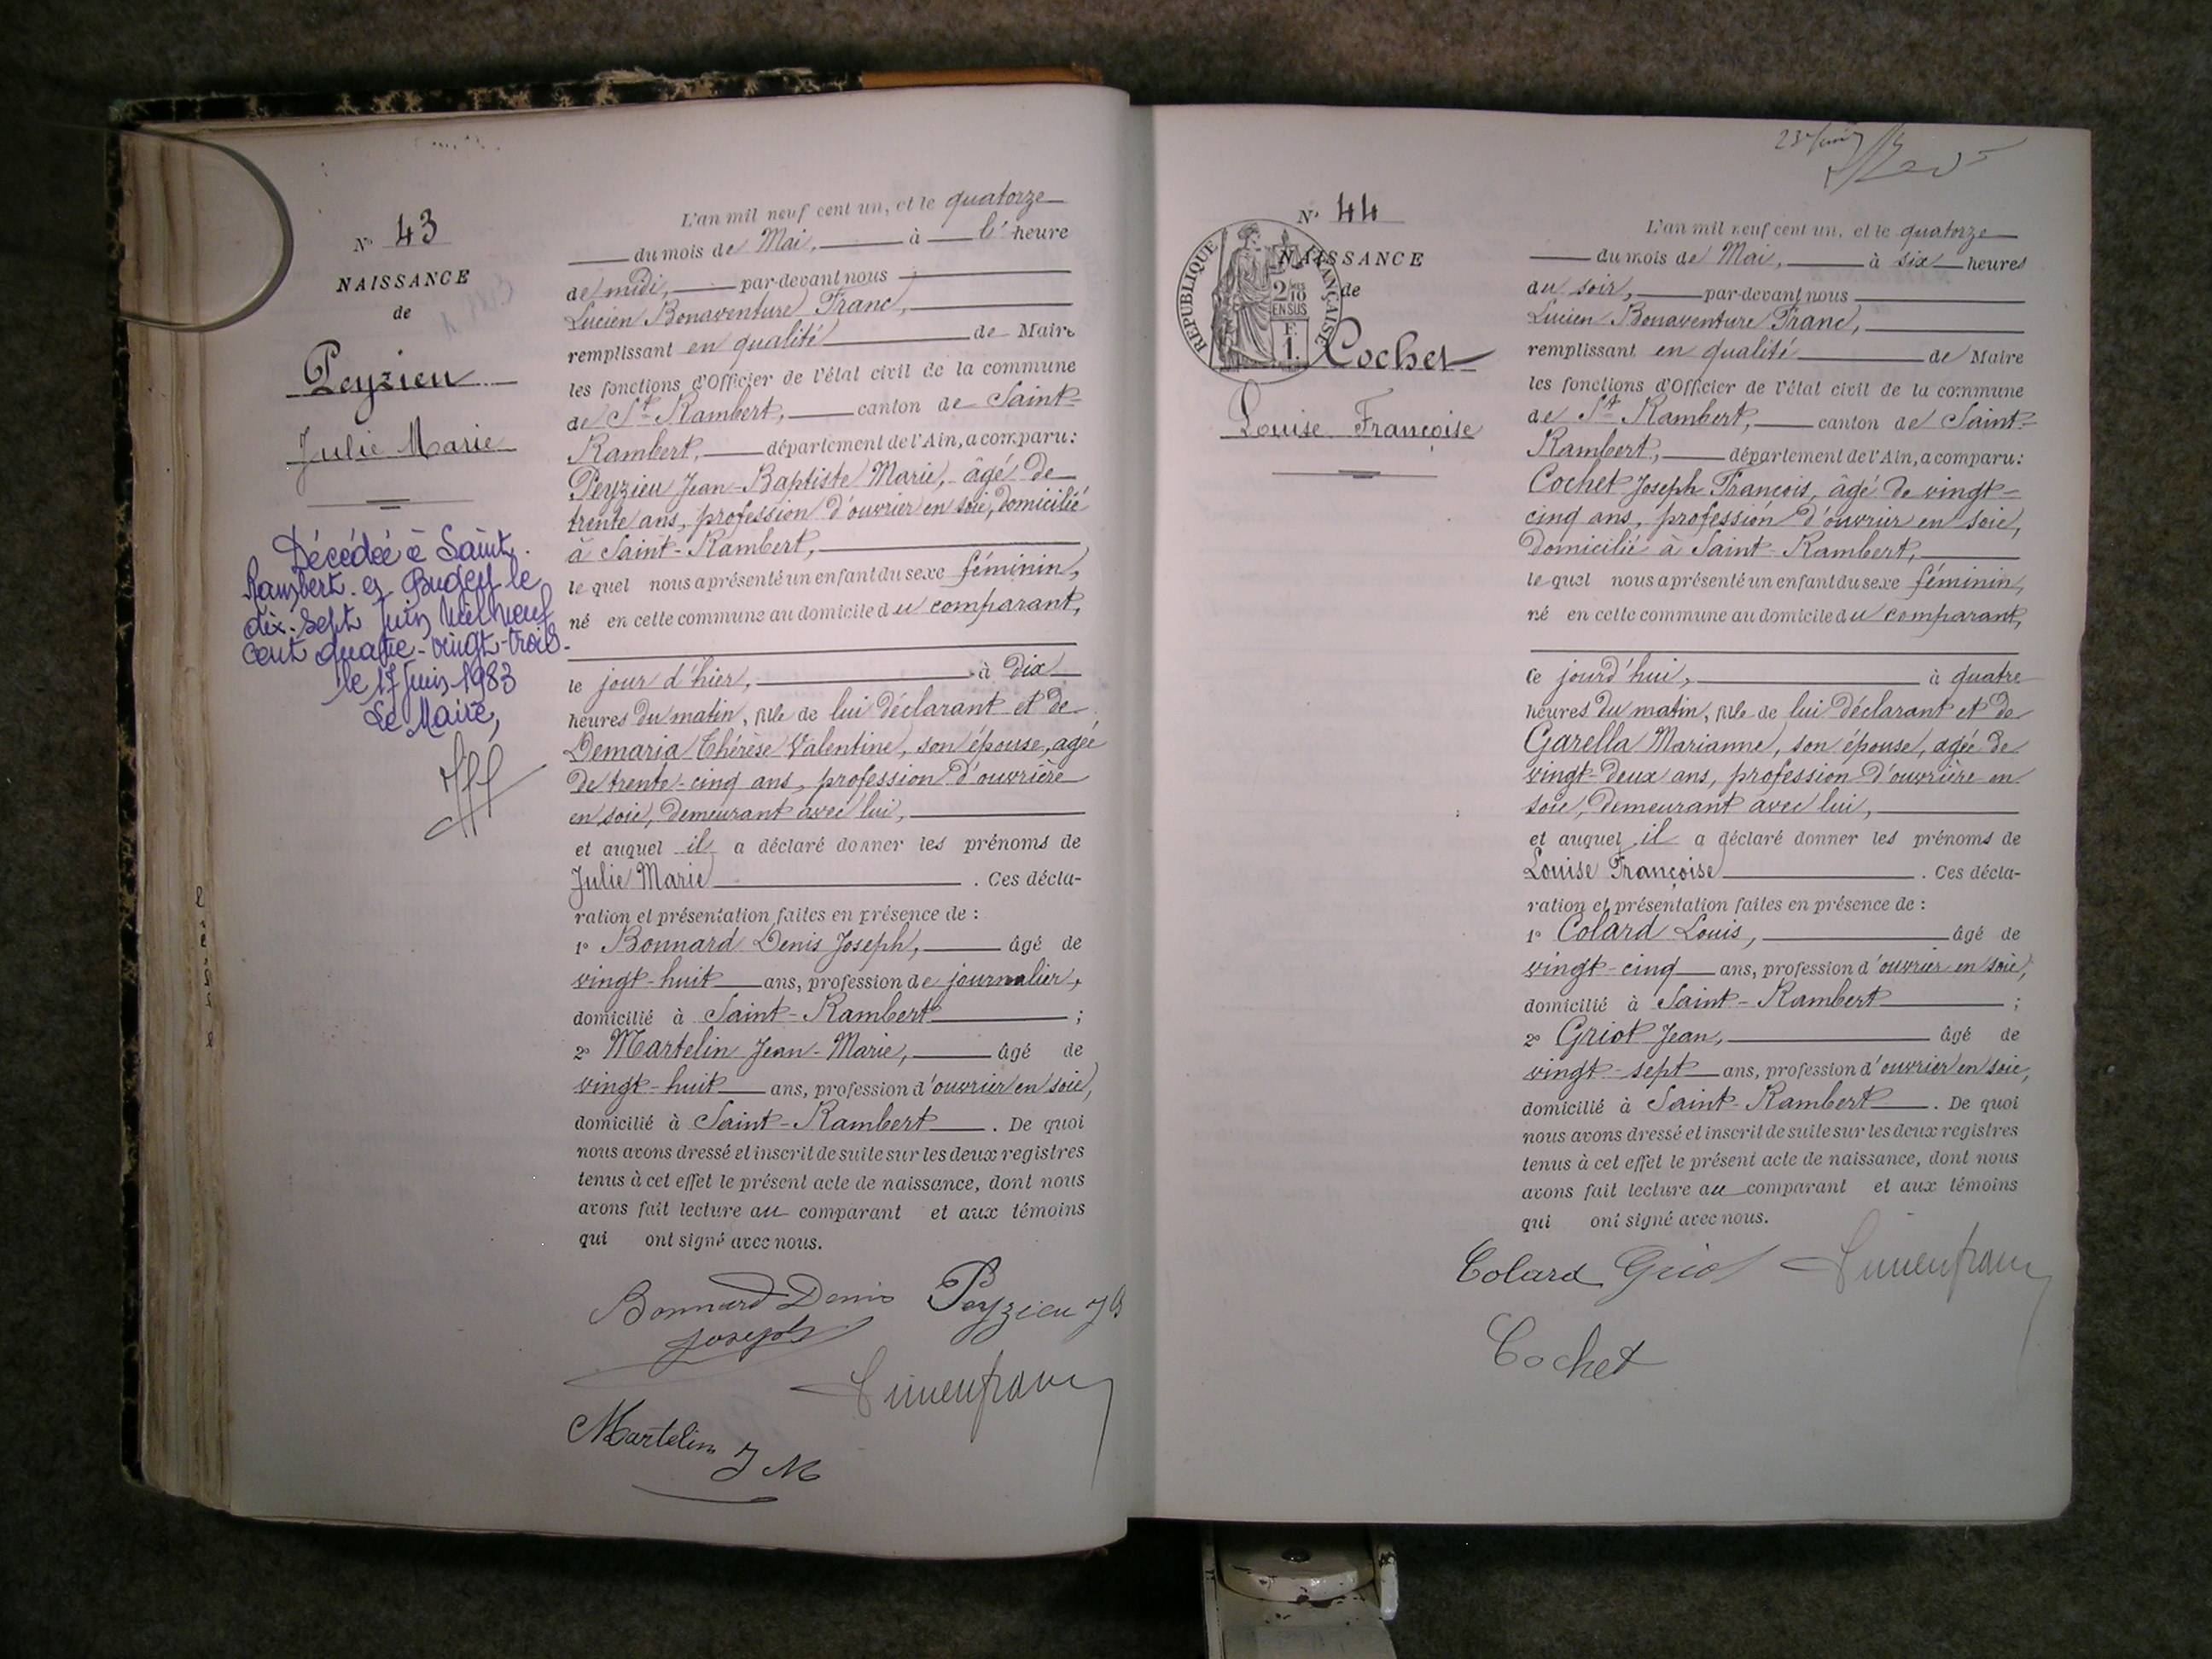 N° 43
NAISSANCE
de
Peyzieu
Julie Marie
Décédée à Saint-
Rambert-en-Bugey le
dix-sept Juin Mil neuf
cent quatre-vingt-trois-
le 17 Juin 1983
Le Maire,
L'an mil neuf cent un, et le quatorze
du mois de Mai, à l' heure
de midi, par-devant nous
Lucien Bonaventure Franc,
remplissant en qualité de Maire
les fonctions d'Officier de l'état civil de la commune
de St Rambert, canton de Saint-
Rambert, département de l'Ain, a comparu:
Peyzieu Jean-Baptiste Marie, âgé de
trente ans, profession d'ouvrier en soie, domicilié
à Saint-Rambert,
lequel nous a présenté un enfant du sexe féminin,
né en cette commune au domicile du comparant,
le jour d'hier, à dix
heures du matin, fille de lui déclarant et de
Demaria Thérèse Valentine, son épouse, agée
de trente-cinq ans, profession d'ouvrière
en soie, demeurant avec lui,
et auquel il a déclaré donner les prénoms de
Julie Marie . Ces décla-
ration et présentation faites en présence de :
1° Bonnard Denis Joseph, âgé de
vingt-huit ans, profession de journalier,
domicilié à Saint-Rambert ;
2° Martelin Jean-Marie, âgé de
vingt-huit ans, profession d'ouvrier en soie,
domicilié à Saint-Rambert . De quoi
nous avons dressé et inscrit de suite sur les deux registres
tenus à cet effet le présent acte de naissance, dont nous
avons fait lecture au comparant et aux témoins
qui ont signé avec nous.
Bonnard Denis Peyzieu JB
Joseph
Lucien franc
Martelin J M
N° 44
NAISSANCE
de
RÉPUBLIQUE FRANÇAISE
2/10 EN SUS
F. 1.
Cochet
Louise Françoise
L'an mil neuf cent un, et le quatorze
du mois de Mai, à six heures
du soir, par-devant nous
Lucien Bonaventure Franc,
remplissant en qualité de Maire
les fonctions d'Officier de l'état civil de la commune
de St Rambert, canton de Saint-
Rambert, département de l'Ain, a comparu:
Cochet Joseph François, âgé de vingt-
cinq ans, profession d'ouvrier en soie,
domicilié à Saint-Rambert,
lequel nous a présenté un enfant du sexe féminin,
né en cette commune au domicile du comparant,
ce jourd'hui, à quatre
heures du matin, fille de lui déclarant et de
Garella Marianne, son épouse, agée de
vingt-deux ans, profession d'ouvrière en
soie, demeurant avec lui,
et auquel il a déclaré donner les prénoms de
Louise Françoise . Ces décla-
ration et présentation faites en présence de :
1° Colard Louis, âgé de
vingt-cinq ans, profession d'ouvrier en soie,
domicilié à Saint-Rambert ;
2° Griot Jean, âgé de
vingt-sept ans, profession d'ouvrier en soie,
domicilié à Saint-Rambert . De quoi
nous avons dressé et inscrit de suite sur les deux registres
tenus à cet effet le présent acte de naissance, dont nous
avons fait lecture au comparant et aux témoins
qui ont signé avec nous.
Colard Griot Lucien franc
Cochet